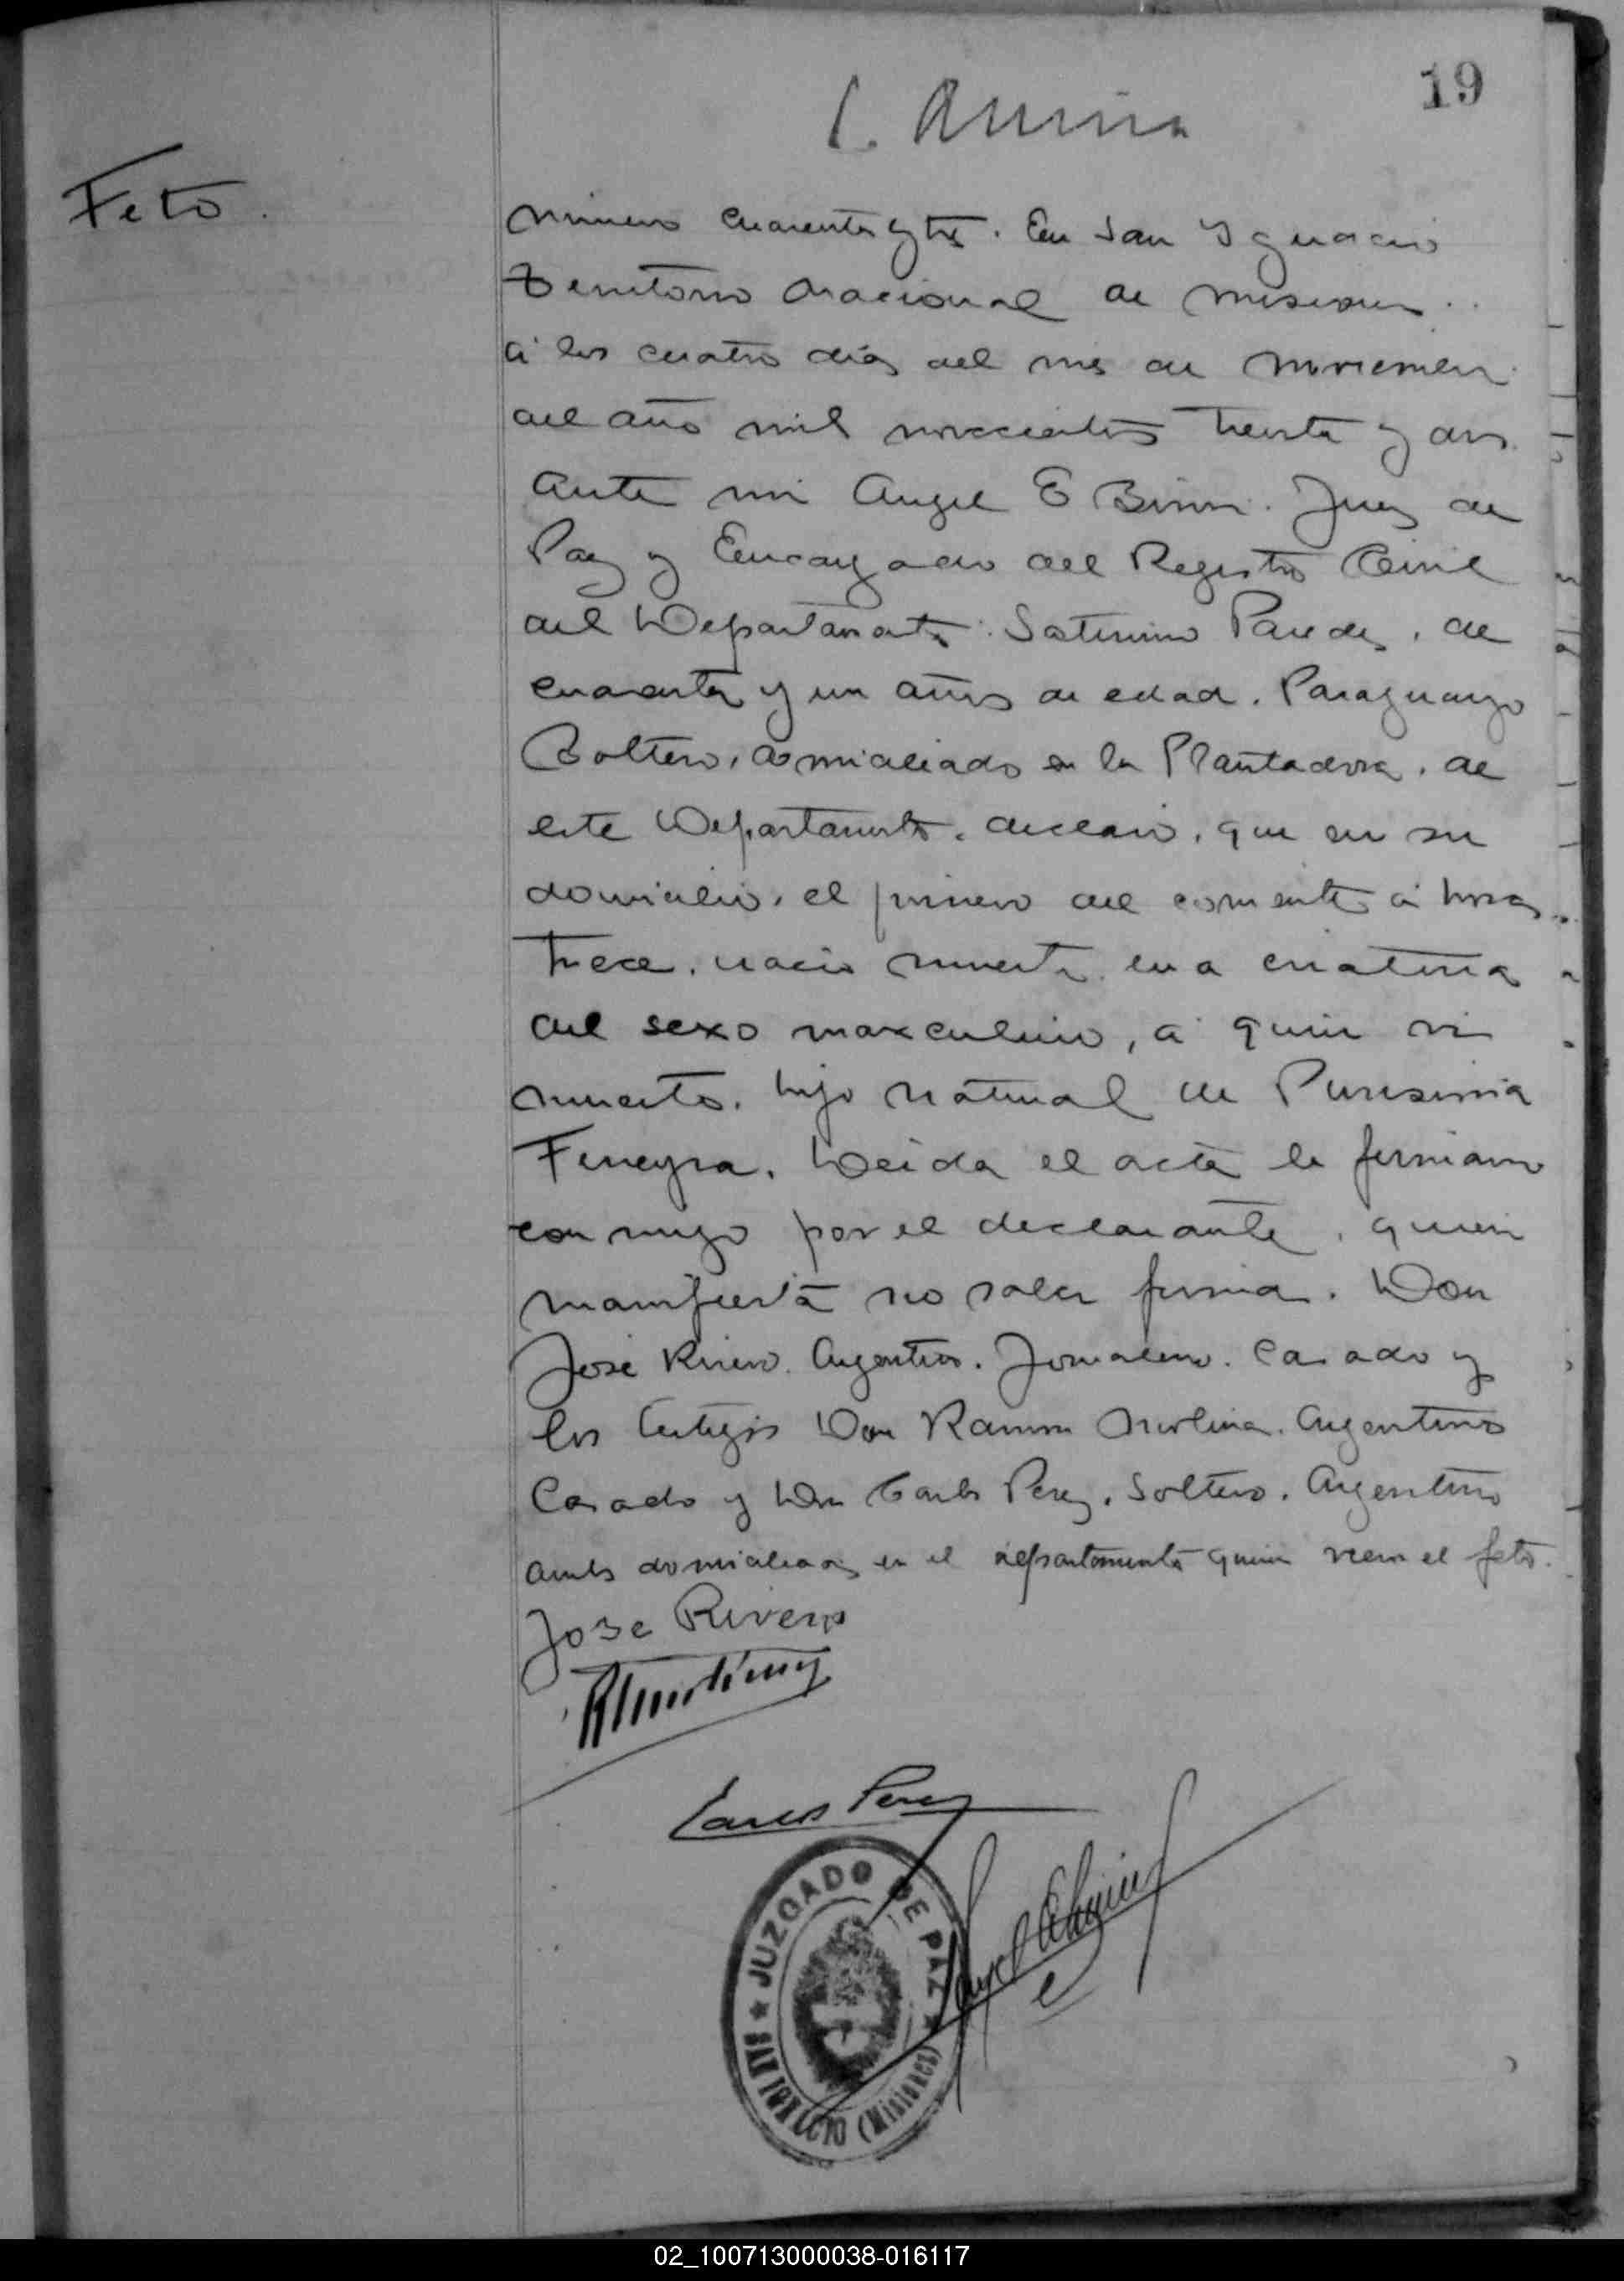 19
Feto.
numero cuarenta y tres. En San Ygnacio
Territorio Nacional de Misiones
á los cuatro dias del mes de Noviembre
del año mil novecientos treinta y dos
ante mi Angel E Juez de
Paz y Encargado del Registro Civil
del Departamento. Saturnino Paredes, de
cuarenta y un años de edad. Paraguayo
Soltero, domiciliado en la Plantadora, de
este Departamento. declaró, que en su
domicilio, el primero del corriente á horas
trece, nació muerta una criatura
del sexo maxculino, á quien vi
muerto, hijo natural de Puresima
Ferreyra. Leida el acta la firmaron
conmigo por el declarante, quien
manifiesta no saber firmar. Don
José Rivero. Argentino. Jornalero. Casado y
los testigos Don Ramon Molina. Argentino
Casado y Don Carlos Perez, Soltero. Argentino
ambos domiciliados en el departamento quien vieron el feto.
Jose Rivero
Carlos Perez
★ JUZGADO DE PAZ ★
SAN IGNACIO (Misiones)
02_100713000038-016117